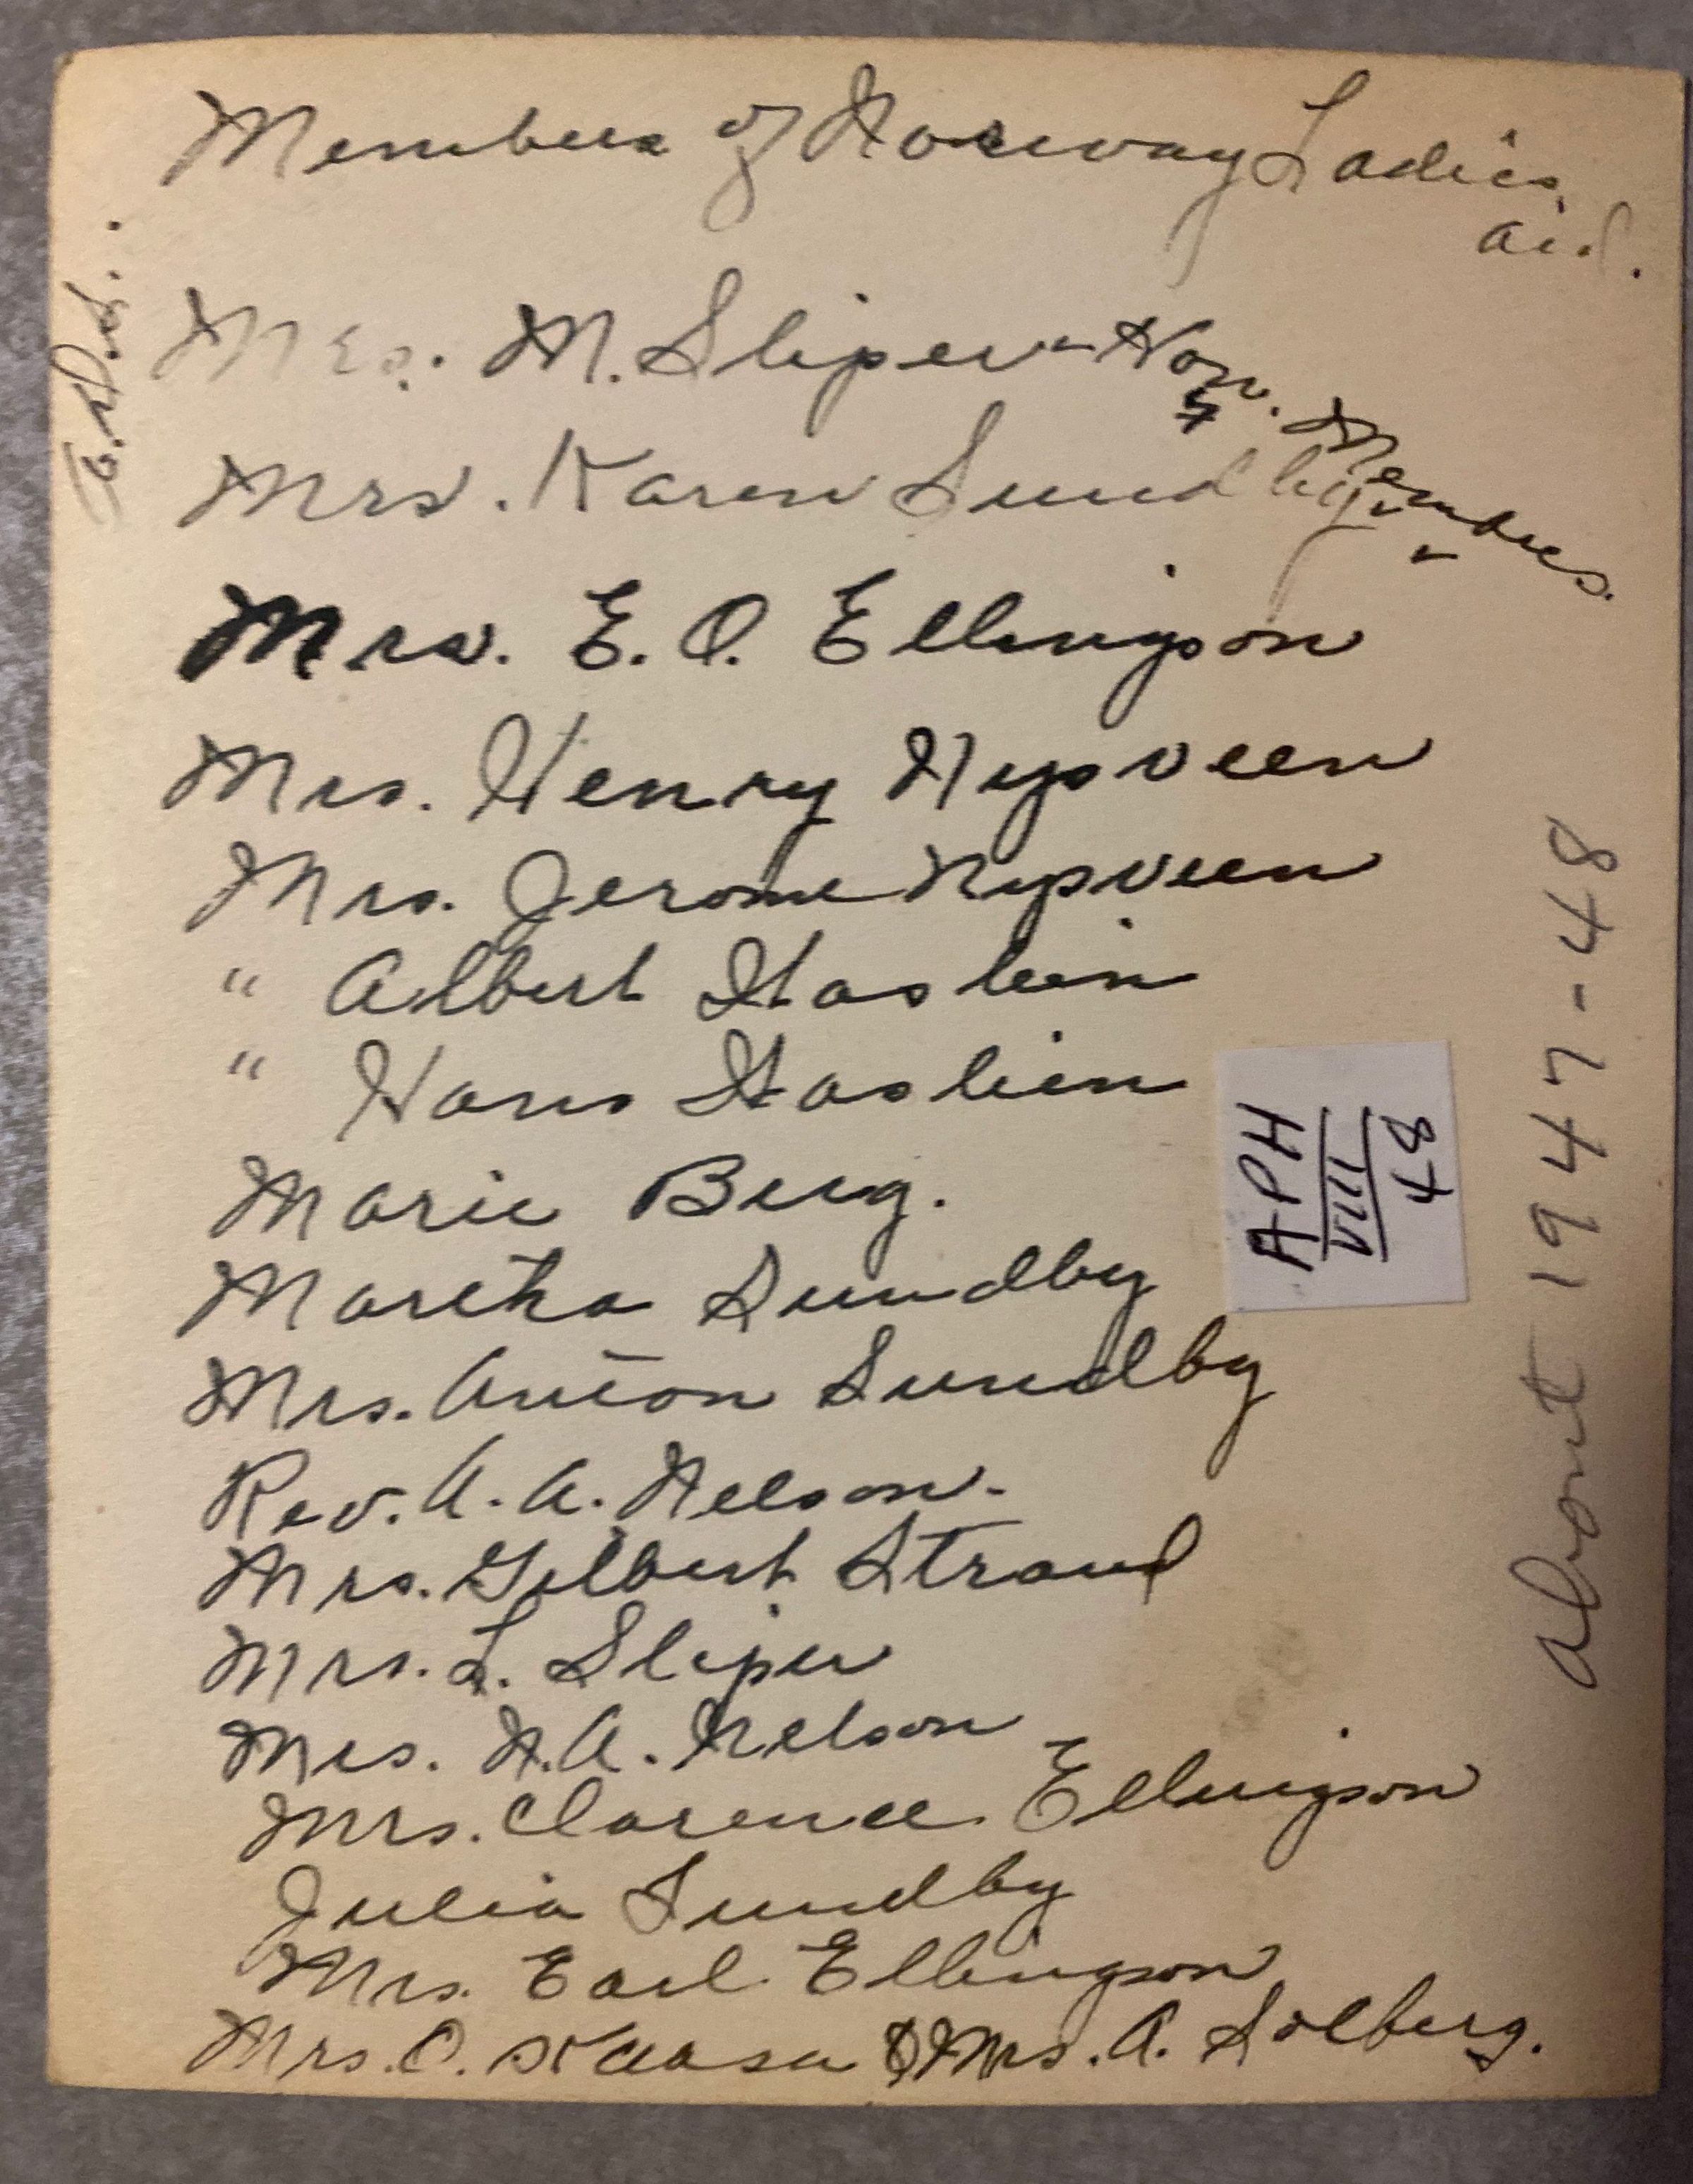 Members of Norway Ladies
aid.
Mrs. M. Sliper - Hon. Members.
Mrs. Karen Sundby
Mrs. E. O. Ellingson
Mrs. Henry Nysveen
Mrs. Jerome Nysveen
" Albert Haslien
" Hans Haslien
Marie Berg.
Martha Sundby
Mrs. Anton Sundby
Rev. A. A. Nelson.
Mrs. Gilbert Strand
Mrs. L. Sliper
Mrs. N. A. Nelson
Mrs. Clarence Ellingson
Julia Sundby
Mrs. Earl Ellingson
Mrs. O. Kaasa & Mrs. A. Solberg.
APH
VIII
48
About 1947-48